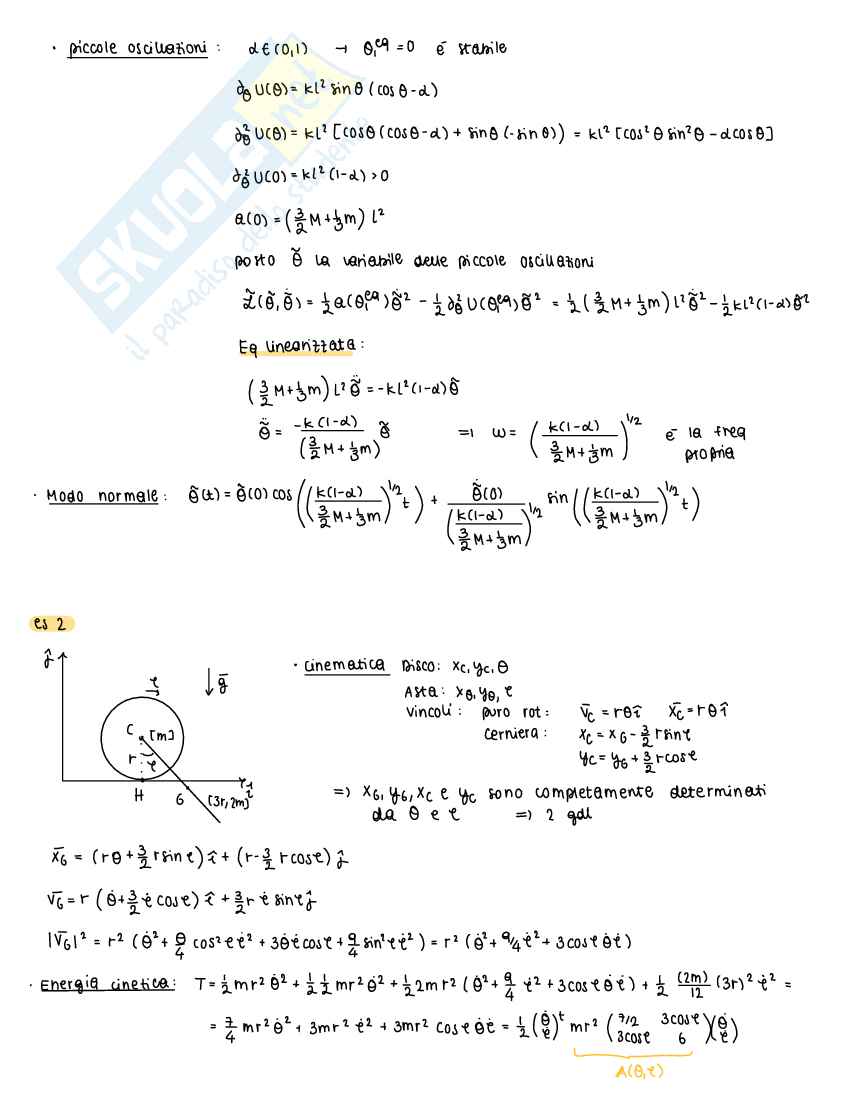 · piccole oscillazioni : α∈(0,1) → θ₁^eq = 0 è stabile
∂_θ U(θ) = kl² sinθ (cosθ-α)
∂²_θ U(θ) = kl² [cosθ(cosθ-α) + sinθ(-sinθ)) = kl² [cos²θ sin²θ - αcosθ]
∂²_θ U(0) = kl² (1-α) > 0
a(0) = (3/2 M + 1/3 m) l²
posto θ̃ la variabile delle piccole oscillazioni
L̃(θ̃, θ̃̇) = 1/2 a(θ₁^eq) θ̃̇² - 1/2 ∂²_θ U(θ₁^eq) θ̃² = 1/2 (3/2 M + 1/3 m) l² θ̃̇² - 1/2 kl² (1-α) θ̃²
Eq linearizzata :
(3/2 M + 1/3 m) l² θ̃̈ = -kl² (1-α) θ̃
θ̃̈ = -k(1-α) / (3/2 M + 1/3 m) θ̃ => ω = (k(1-α) / (3/2 M + 1/3 m))^1/2 è la freq propria
· Modo normale : θ̃(t) = θ̃(0) cos((k(1-α) / (3/2 M + 1/3 m))^1/2 t) + θ̃̇(0) / (k(1-α) / (3/2 M + 1/3 m))^1/2 sin((k(1-α) / (3/2 M + 1/3 m))^1/2 t)
es 2
ĵ
φ
ḡ
C
[m]
r
φ
H
G
[3r, 2m]
î
· Cinematica Disco: xc, yc, θ
Asta: xθ, yθ, φ
Vincoli : puro rot: v̄c = rθ̇ î x̄c = rθ î
cerniera : xc = xG - 3/2 r sinφ
yc = yG + 3/2 r cosφ
=> xG, yG, xc e yc sono completamente determinati
da θ e φ => 2 gdl
x̄G = (rθ + 3/2 r sinφ) î + (r - 3/2 r cosφ) ĵ
v̄G = r (θ̇ + 3/2 φ̇ cosφ) î + 3/2 r φ̇ sinφ ĵ
|v̄G|² = r² (θ̇² + 9/4 cos²φ φ̇² + 3θ̇φ̇ cosφ + 9/4 sin²φ φ̇²) = r² (θ̇² + 9/4 φ̇² + 3cosφ θ̇φ̇)
· Energia cinetica : T = 1/2 mr² θ̇² + 1/2 1/2 mr² θ̇² + 1/2 2m r² (θ̇² + 9/4 φ̇² + 3cosφ θ̇φ̇) + 1/2 (2m)/12 (3r)² φ̇² =
= 7/4 mr² θ̇² + 3mr² φ̇² + 3mr² cosφ θ̇φ̇ = 1/2 (θ̇ φ̇)^t mr² (7/2 3cosφ 3cosφ 6)(θ̇ φ̇)
A(θ,φ)
SKUOLA.net
il paradiso dello studente